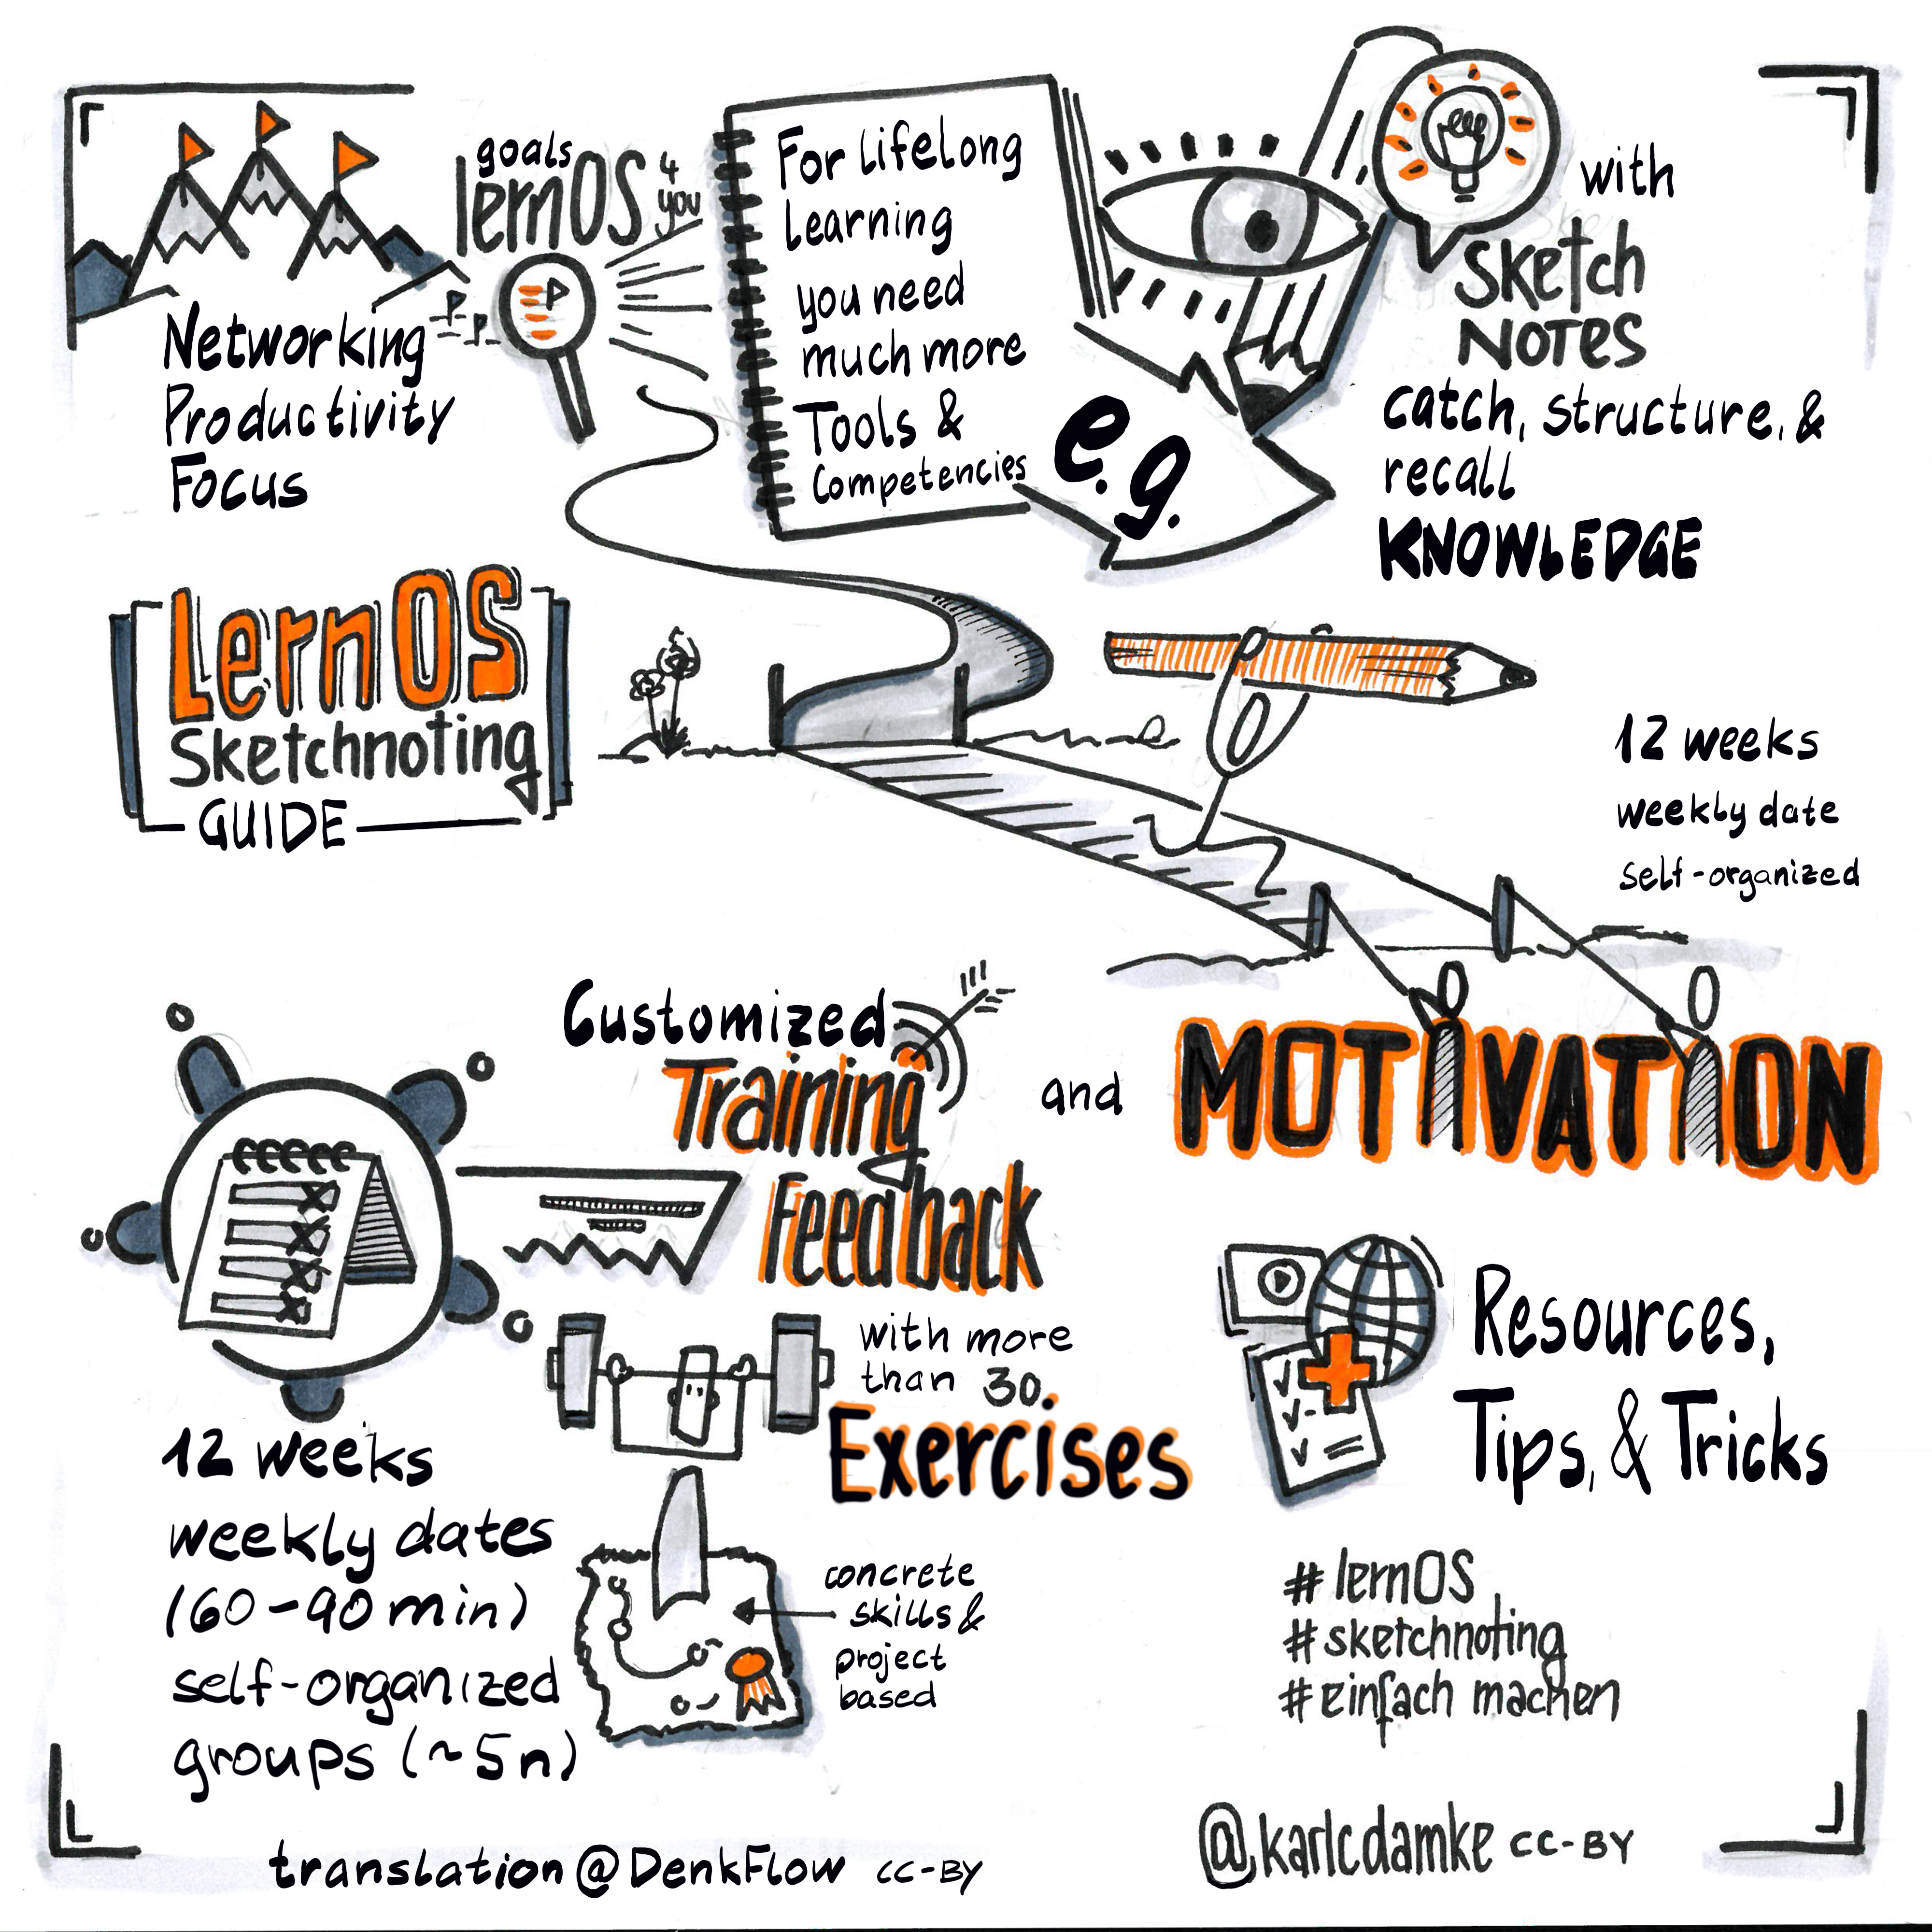 goals
lernOS 4 you
Networking
Productivity
Focus
For Lifelong
Learning
you need
much more
Tools &
Competencies
e.g.
with
Sketch
NOTES
catch, structure, &
recall
KNOWLEDGE
LernOS
Sketchnoting
GUIDE
12 weeks
weekly date
self-organized
Customized
Training
Feedback
and
MOTIVATION
with more
than 30
Exercises
12 weeks
weekly dates
(60-90 min)
self-organized
groups (~5n)
concrete
skills &
project
based
Resources,
Tips, & Tricks
# lernOS
# sketchnoting
# einfach machen
translation @DenkFlow CC-BY
@karlcdamke CC-BY